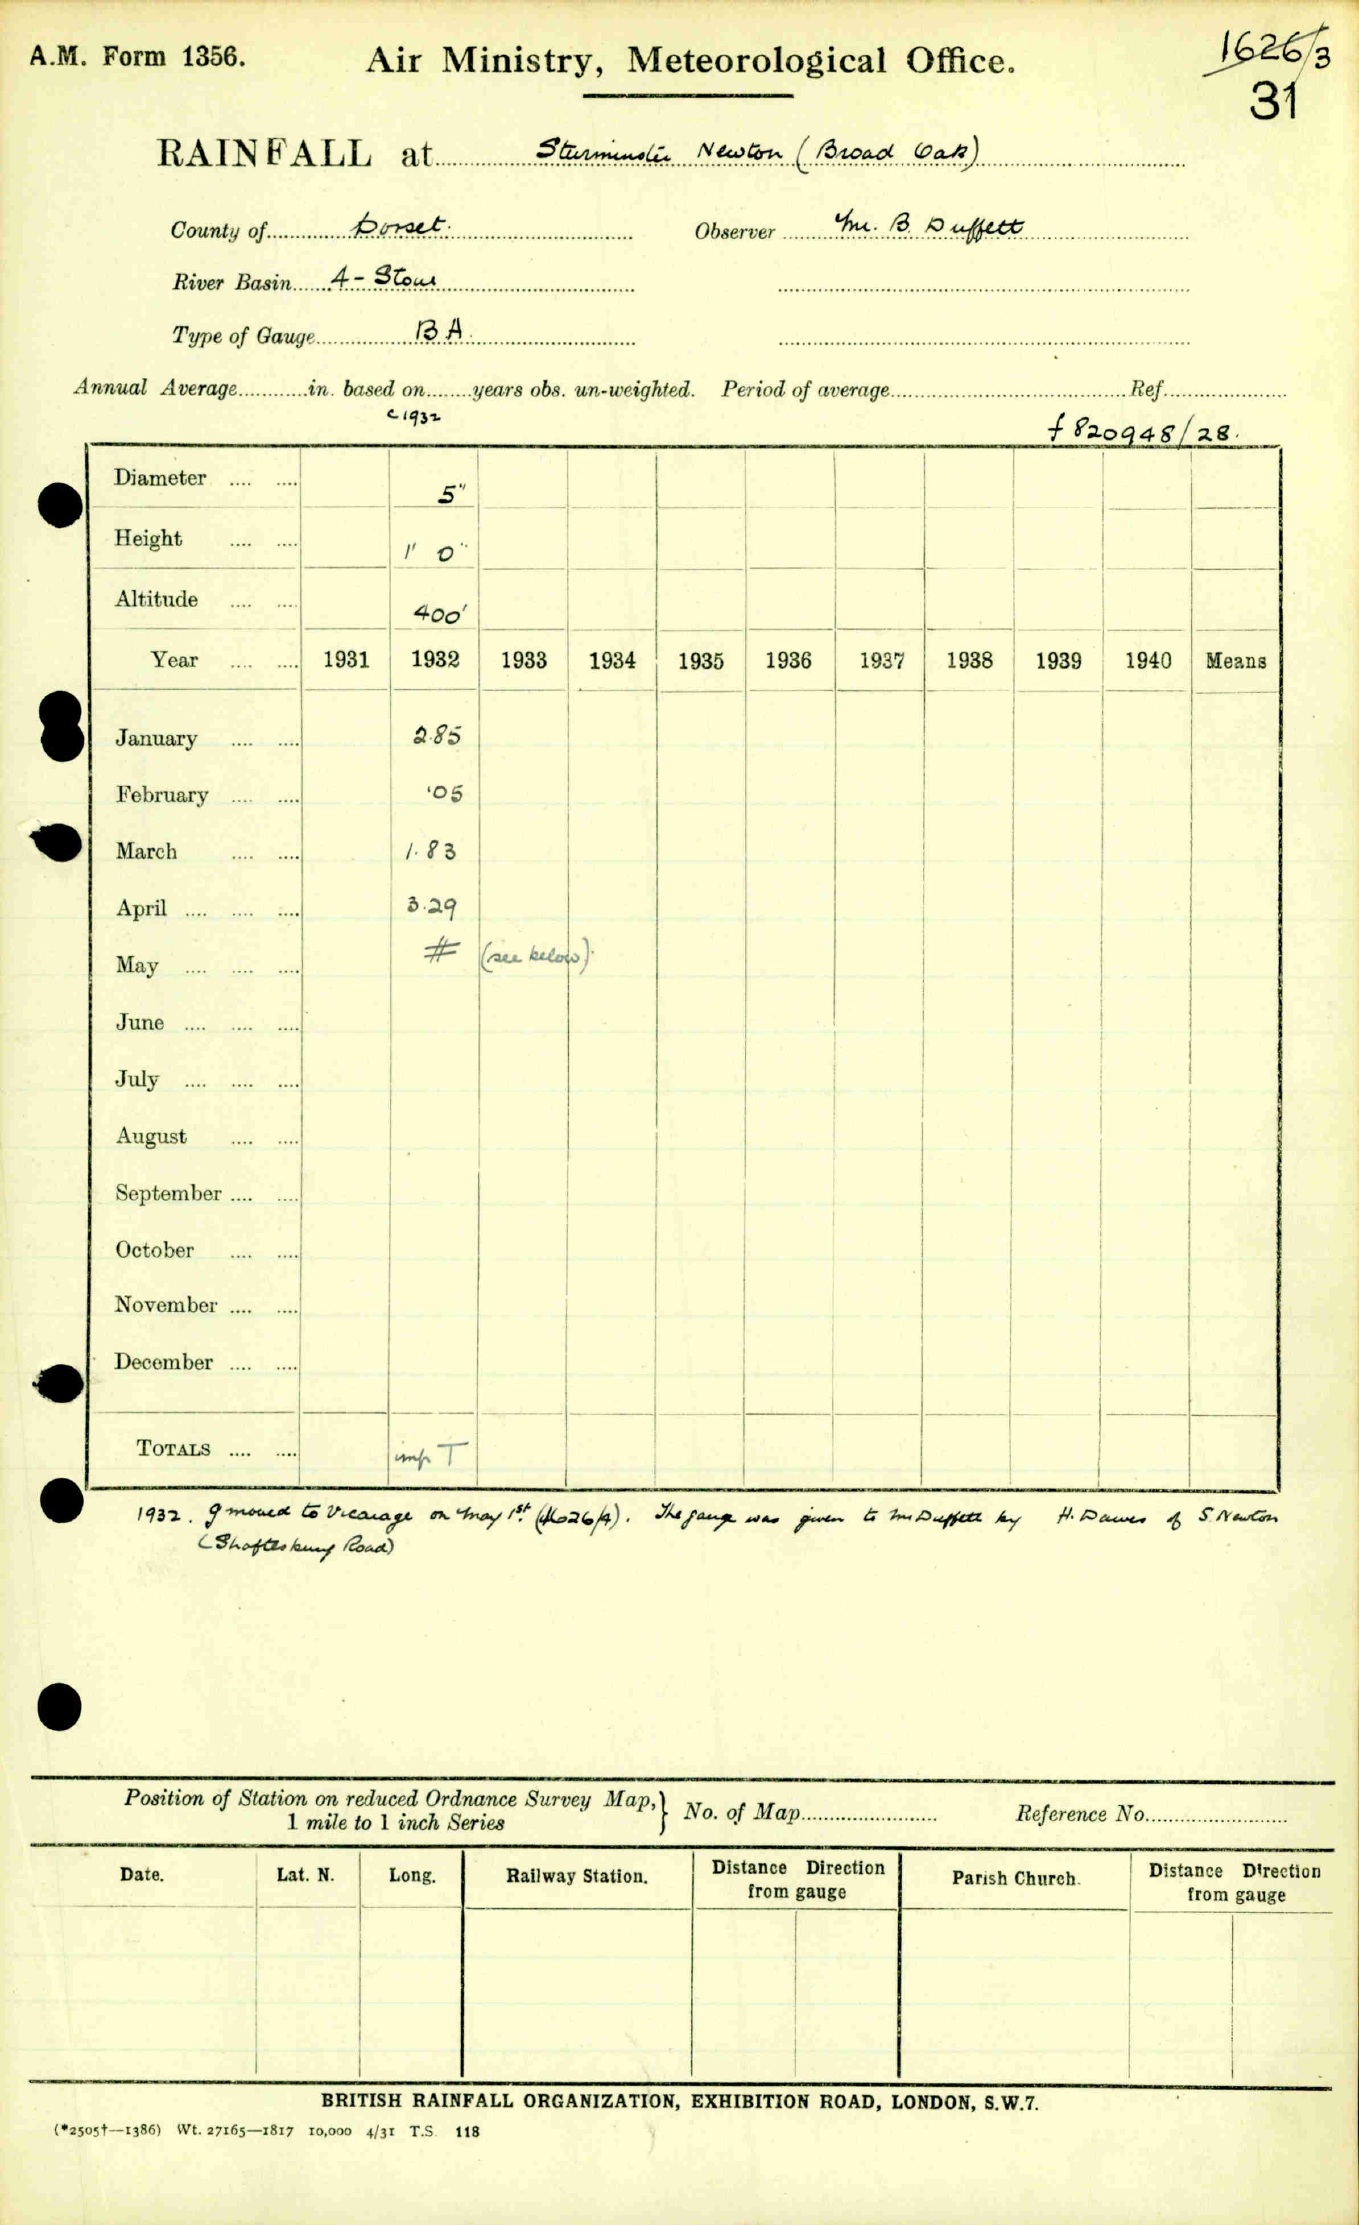 A.M. Form 1356. Air Ministry, Meteorological Office. 1626/3
31
RAINFALL at Sturminster Newton (Broad Oak)
County of Dorset. Observer Mr. B. Duffett
River Basin 4 - Stour
Type of Gauge BA.
Annual Average in. based on years obs. un-weighted. Period of average Ref.
c 1932 f 820948/28.
Diameter .... .... 5"
Height .... .... 1' 0"
Altitude .... .... 400'
Year .... .... 1931 1932 1933 1934 1935 1936 1937 1938 1939 1940 Means
January .... .... 2.85
February .... .... .05
March .... .... 1.83
April .... .... .... 3.29
May .... .... .... # (see below).
June .... .... ....
July .... .... ....
August .... ....
September .... ....
October .... ....
November .... ....
December .... ....
TOTALS .... .... imp T
1932. g moved to Vicarage on May 1st. (1626/4). The gauge was given to Mr Duffett by H. Dawes of S. Newton
(Shaftesbury Road)
Position of Station on reduced Ordnance Survey Map,} No. of Map Reference No.
1 mile to 1 inch Series
Date. Lat. N. Long. Railway Station. Distance Direction from gauge Parish Church. Distance Direction from gauge
BRITISH RAINFALL ORGANIZATION, EXHIBITION ROAD, LONDON, S.W.7.
(*2505†—1386) Wt. 27165—1817 10,000 4/31 T.S. 118